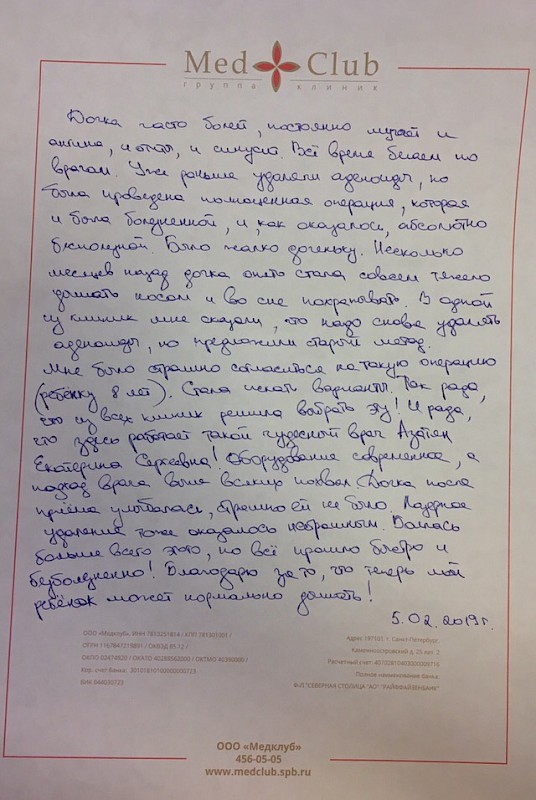 Med Club
группа клиник
Дочка часто болеет, постоянно мучает и
ангина, и отиты, и синусит. Всё время бегаем по
врачам. Уже раньше удаляли аденоиды, но
была проведена полноценная операция, которая
и была болезненной, и, как оказалось, абсолютно
бесполезной. Было жалко доченьку. Несколько
месяцев назад дочка опять стала совсем тяжело
дышать носом и во сне похрапывать. В одной
из клиник мне сказали, что надо снова удалять
аденоиды, но предложили старый метод.
Мне было страшно согласиться на такую операцию
(ребёнку 8 лет). Стала искать варианты. Так рада,
что из всех клиник решила выбрать эту! И рада,
что здесь работает такой чудесный врач
Екатерина Сергеевна! Оборудование современное, а
подход врача выше всяких похвал. Дочка после
приёма улыбалась, страшно ей не было. Лазерное
удаление тоже оказалось нестрашным. Боялась
больше всего этого, но всё прошло быстро и
безболезненно! Благодарю за то, что теперь мой
ребёнок может нормально дышать!
5.02.2019г.
ООО «Медклуб», ИНН 7813251814 / 781301001 /
ОГРН 1167847279891 / ОКВЭД 85.12 /
ОКПО 02474920 / ОКАТО 40288562000 / ОКТМО 40390000 /
Кор. счет банка: 30101810100000000723
БИК 044030723
Адрес 197101, г. Санкт-Петербург,
Каменноостровский д. 25 лит. 2
Расчетный счет: 40702810403000000716
Полное наименование банка:
Ф-Л "СЕВЕРНАЯ СТОЛИЦА "АО" "РАЙФФАЙЗЕНБАНК"
ООО «Медклуб»
456-05-05
www.medclub.spb.ru